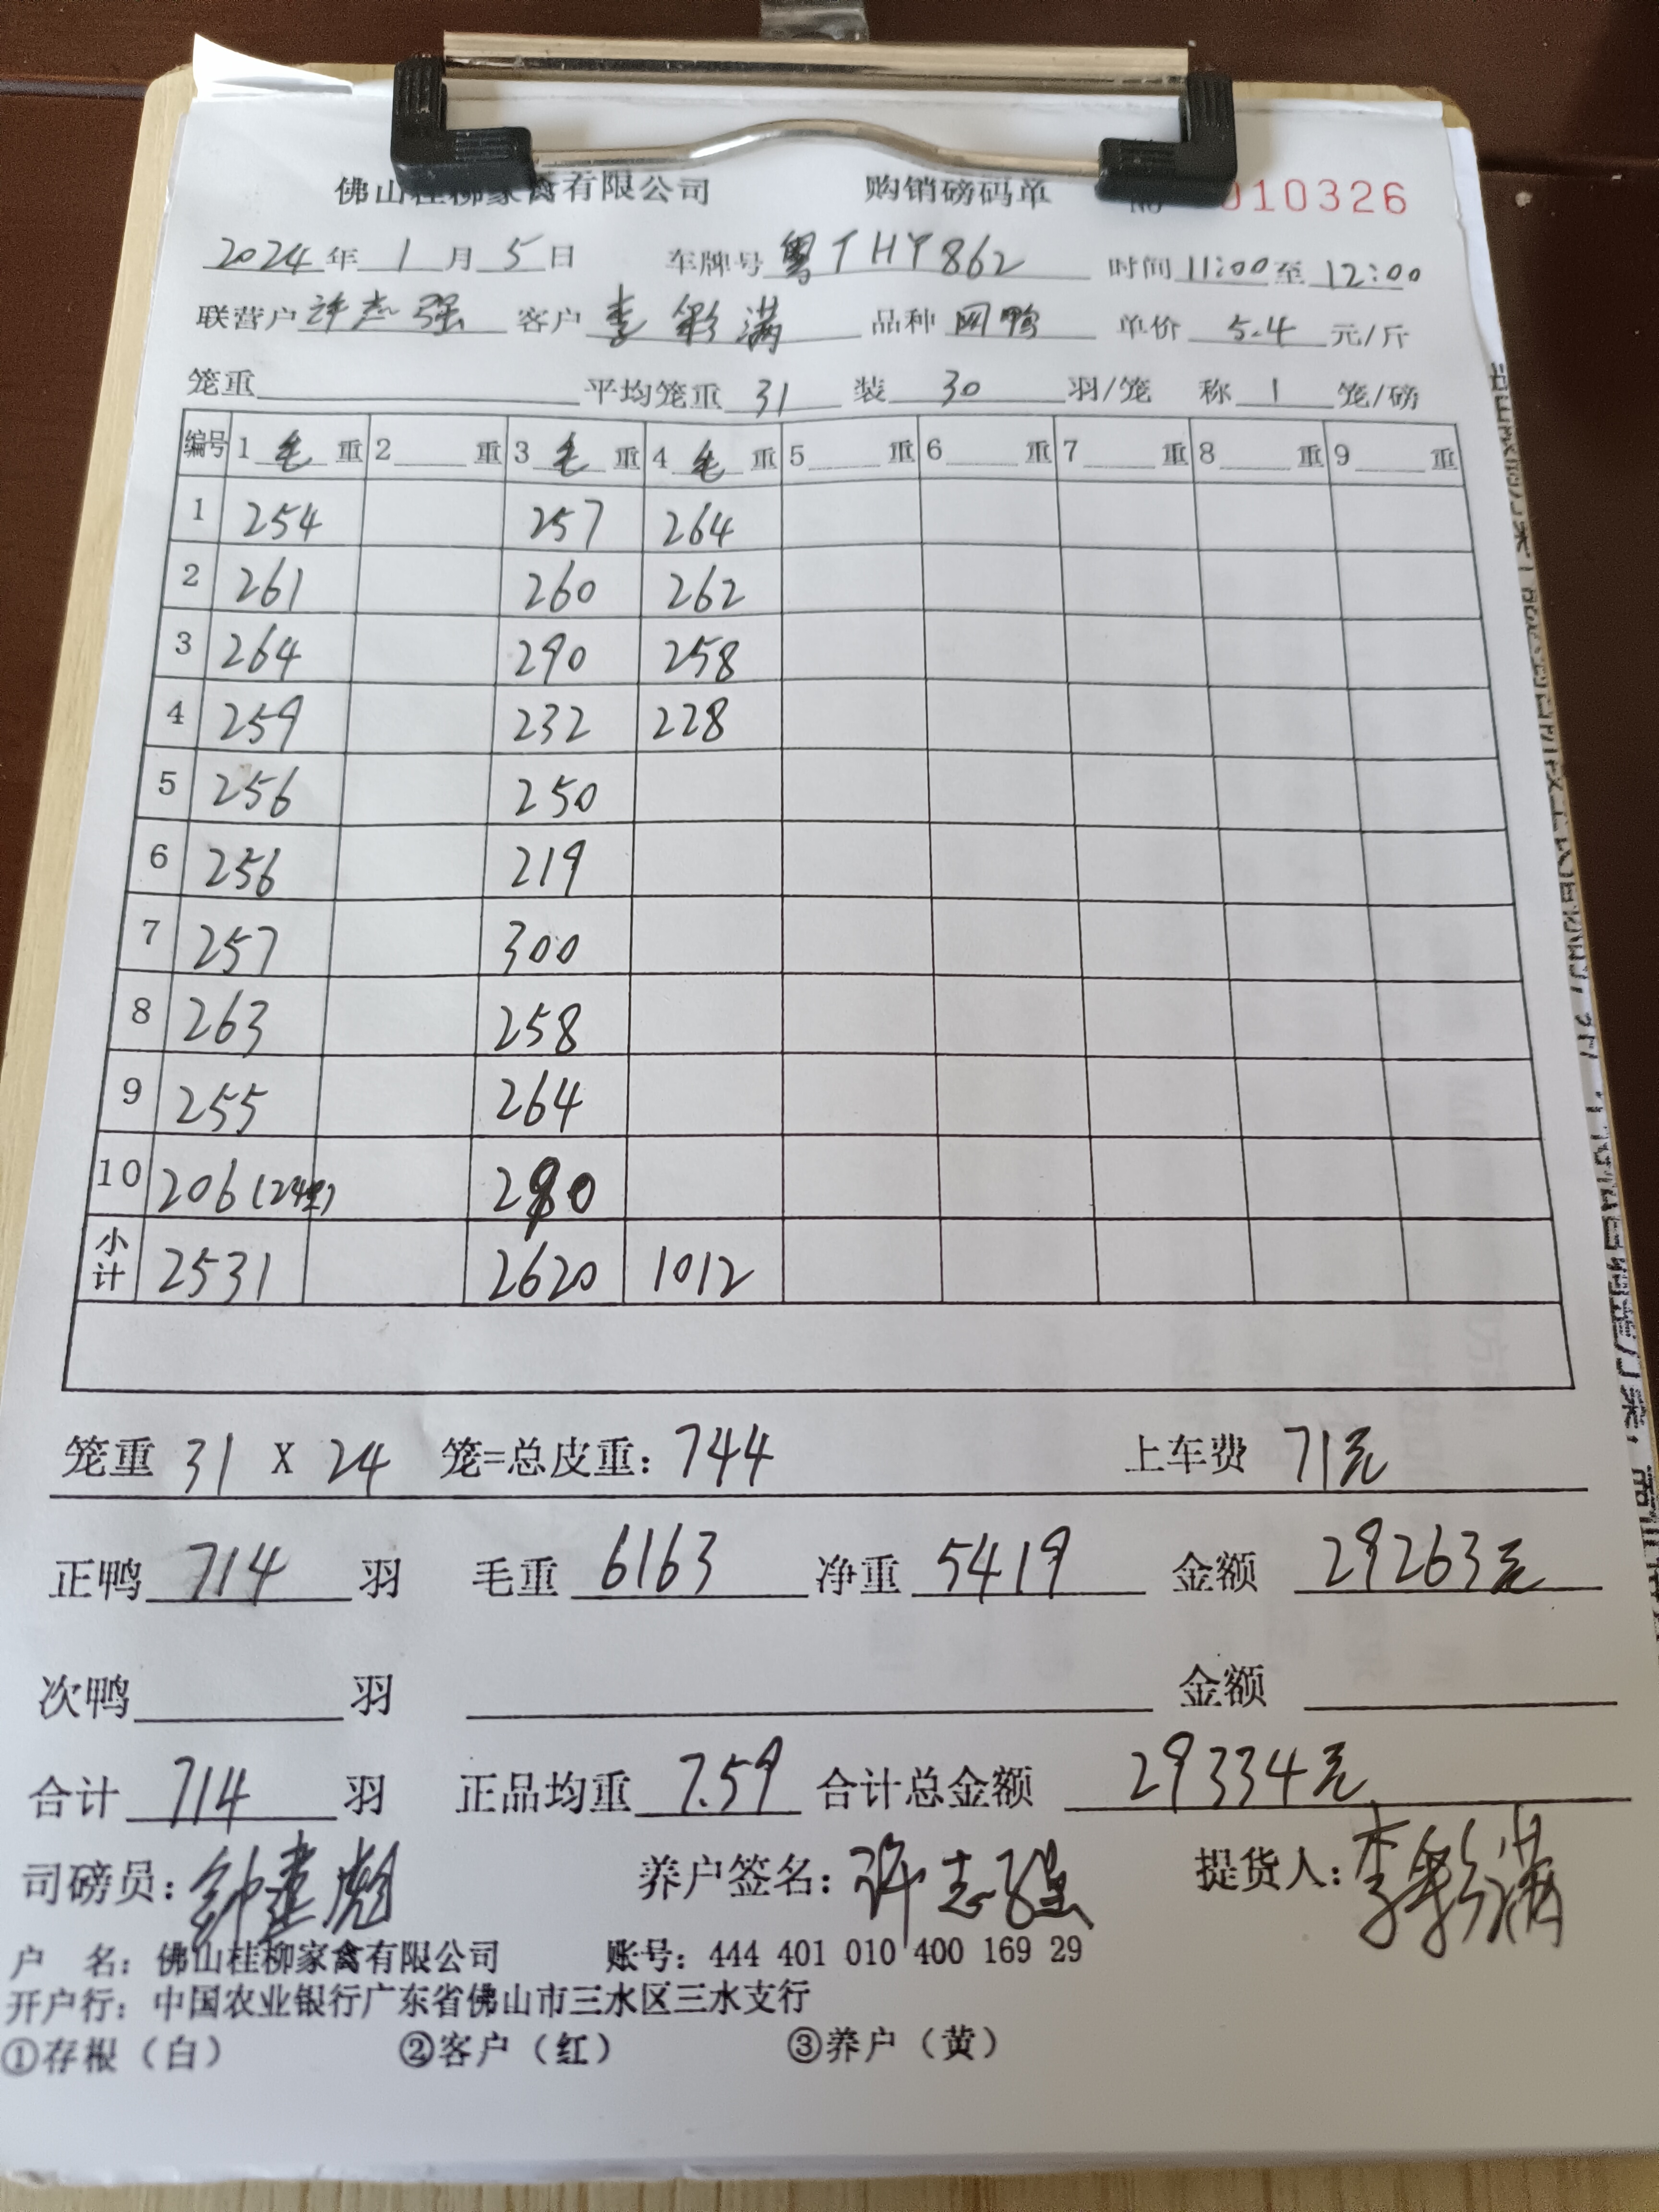 佛山桂柳家禽有限公司 购销磅码单 No 010326
2024年1月5日 车牌号 粤THY862 时间 11:00 至 12:00
联营户 许志强 客户 李彩满 品种 网鸭 单价 5.4 元/斤
笼重 平均笼重 31 装 30 羽/笼 称 1 笼/磅
编号 1 毛 重 2 重 3 毛 重 4 毛 重 5 重 6 重 7 重 8 重 9 重
1 254 257 264
2 261 260 262
3 264 290 258
4 259 232 228
5 256 250
6 256 219
7 257 300
8 263 258
9 255 264
10 206(24只) 290
小计 2531 2620 1012
笼重 31 X 24 笼=总皮重: 744 上车费 71元
正鸭 714 羽 毛重 6163 净重 5419 金额 29263元
次鸭 羽 金额
合计 714 羽 正品均重 7.59 合计总金额 29334元
司磅员: 钟建彪 养户签名: 许志强 提货人: 李彩满
户 名: 佛山桂柳家禽有限公司 账号: 444 401 010 400 169 29
开户行: 中国农业银行广东省佛山市三水区三水支行
①存根(白) ②客户(红) ③养户(黄)